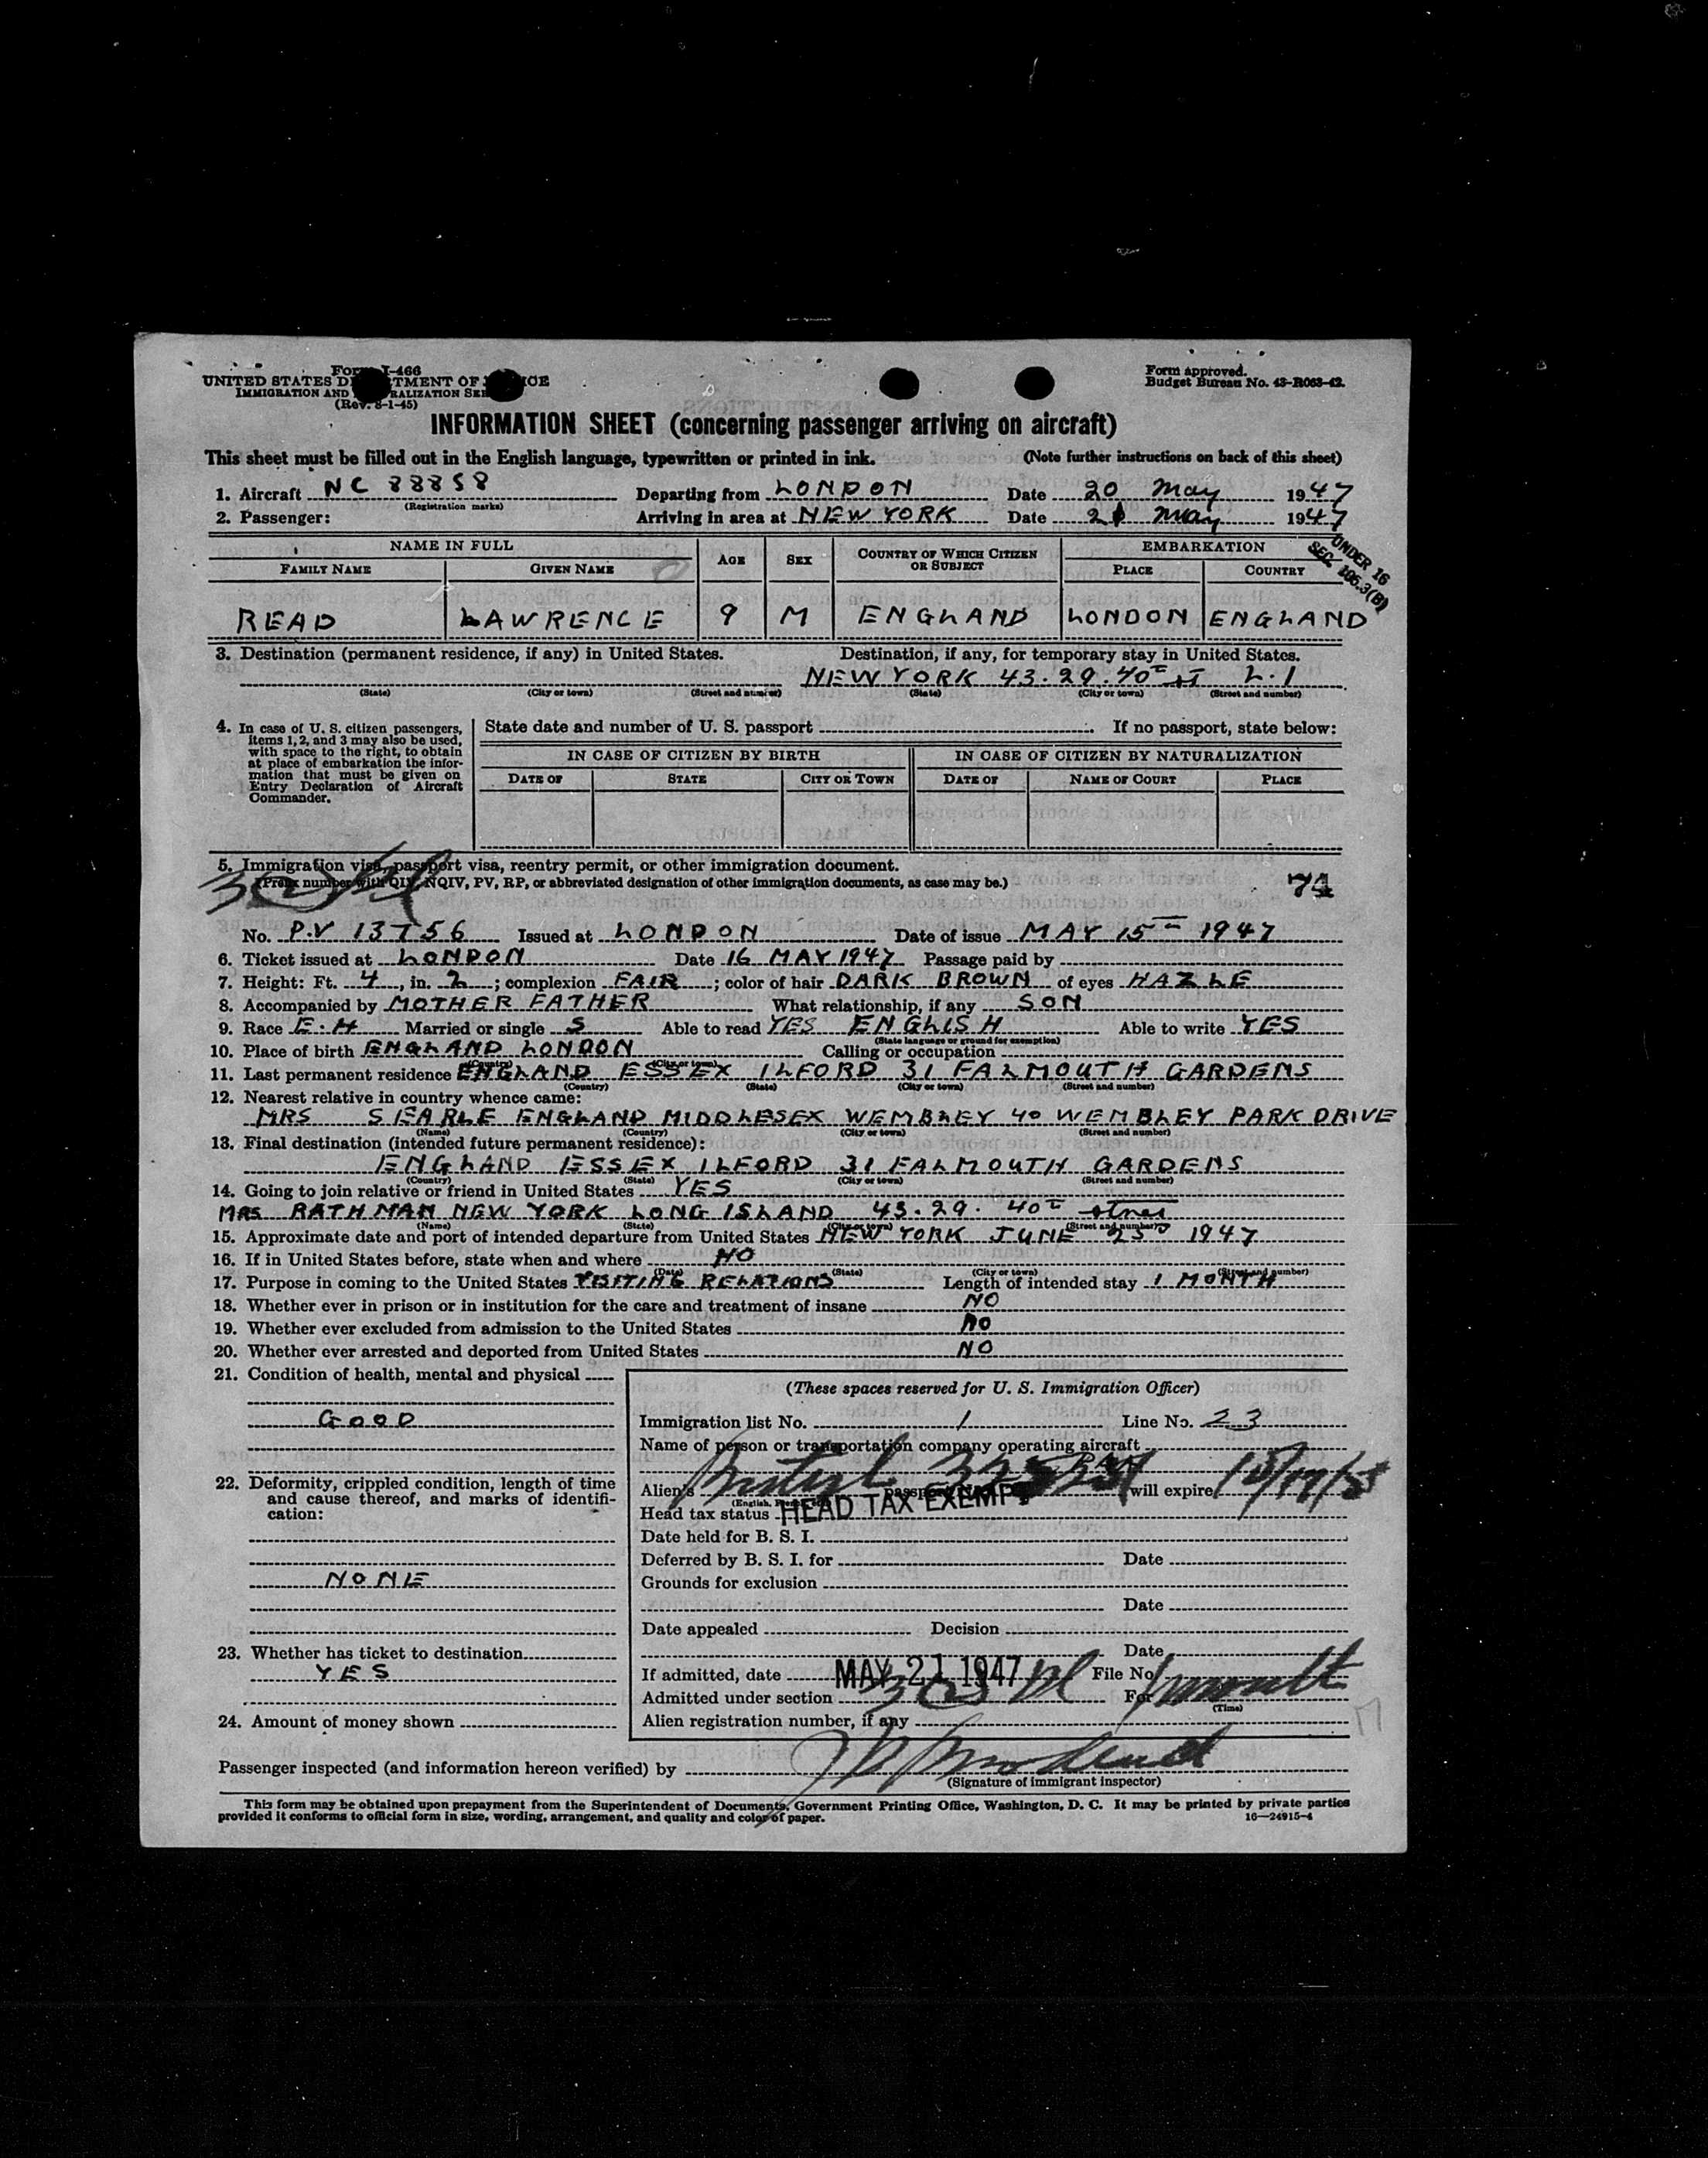 Form I-466
UNITED STATES DEPARTMENT OF JUSTICE
IMMIGRATION AND NATURALIZATION SERVICE
(Rev. 8-1-45)
Form approved.
Budget Bureau No. 43-R063-42.
INFORMATION SHEET (concerning passenger arriving on aircraft)
This sheet must be filled out in the English language, typewritten or printed in ink. (Note further instructions on back of this sheet)
1. Aircraft NC 88858 Departing from LONDON Date 20 May 1947
(Registration marks)
2. Passenger: Arriving in area at NEW YORK Date 21 May 1947
UNDER 16
SEC. 106.3(B)
NAME IN FULL AGE SEX COUNTRY OF WHICH CITIZEN OR SUBJECT EMBARKATION
FAMILY NAME GIVEN NAME PLACE COUNTRY
READ LAWRENCE 9 M ENGLAND LONDON ENGLAND
3. Destination (permanent residence, if any) in United States. Destination, if any, for temporary stay in United States.
NEW YORK 43.29.40 L.I
(State) (City or town) (Street and number) (State) (City or town) (Street and number)
4. In case of U. S. citizen passengers, items 1, 2, and 3 may also be used, with space to the right, to obtain at place of embarkation the information that must be given on Entry Declaration of Aircraft Commander.
State date and number of U. S. passport If no passport, state below:
IN CASE OF CITIZEN BY BIRTH IN CASE OF CITIZEN BY NATURALIZATION
DATE OF STATE CITY OR TOWN DATE OF NAME OF COURT PLACE
5. Immigration visa, passport visa, reentry permit, or other immigration document.
(Prefix number with QIV, NQIV, PV, RP, or abbreviated designation of other immigration documents, as case may be.) 74
No. P.V 13756 Issued at LONDON Date of issue MAY 15 1947
6. Ticket issued at LONDON Date 16 MAY 1947 Passage paid by
7. Height: Ft. 4, in. 2; complexion FAIR; color of hair DARK BROWN of eyes HAZLE
8. Accompanied by MOTHER FATHER What relationship, if any SON
9. Race E.H Married or single S Able to read YES ENGLISH Able to write YES
(State language or ground for exemption)
10. Place of birth ENGLAND LONDON Calling or occupation
(Country) (City or town)
11. Last permanent residence ENGLAND ESSEX ILFORD 31 FALMOUTH GARDENS
(Country) (State) (City or town) (Street and number)
12. Nearest relative in country whence came:
MRS SEARLE ENGLAND MIDDLESEX WEMBLEY 40 WEMBLEY PARK DRIVE
(Name) (Country) (City or town) (Street and number)
13. Final destination (intended future permanent residence):
ENGLAND ESSEX ILFORD 31 FALMOUTH GARDENS
(Country) (State) (City or town) (Street and number)
14. Going to join relative or friend in United States YES
MRS RATHMAN NEW YORK LONG ISLAND 43.29. 40
(Name) (State) (City or town) (Street and number)
15. Approximate date and port of intended departure from United States NEW YORK JUNE 1947
16. If in United States before, state when and where NO
(Date) (State) (City or town) (Street and number)
17. Purpose in coming to the United States VISITING RELATIONS Length of intended stay 1 MONTH
18. Whether ever in prison or in institution for the care and treatment of insane NO
19. Whether ever excluded from admission to the United States NO
20. Whether ever arrested and deported from United States NO
21. Condition of health, mental and physical
GOOD
22. Deformity, crippled condition, length of time and cause thereof, and marks of identification:
NONE
23. Whether has ticket to destination
YES
24. Amount of money shown
(These spaces reserved for U. S. Immigration Officer)
Immigration list No. 1 Line No. 23
Name of person or transportation company operating aircraft
PAA
Alien's British passport will expire
Head tax status HEAD TAX EXEMPT
Date held for B. S. I.
Deferred by B. S. I. for Date
Grounds for exclusion
Date
Date appealed Decision
Date
If admitted, date MAY 21 1947 File No.
Admitted under section For 1 month
(Time)
Alien registration number, if any
Passenger inspected (and information hereon verified) by
(Signature of immigrant inspector)
This form may be obtained upon prepayment from the Superintendent of Documents, Government Printing Office, Washington, D. C. It may be printed by private parties
provided it conforms to official form in size, wording, arrangement, and quality and color of paper. 16—24915-4